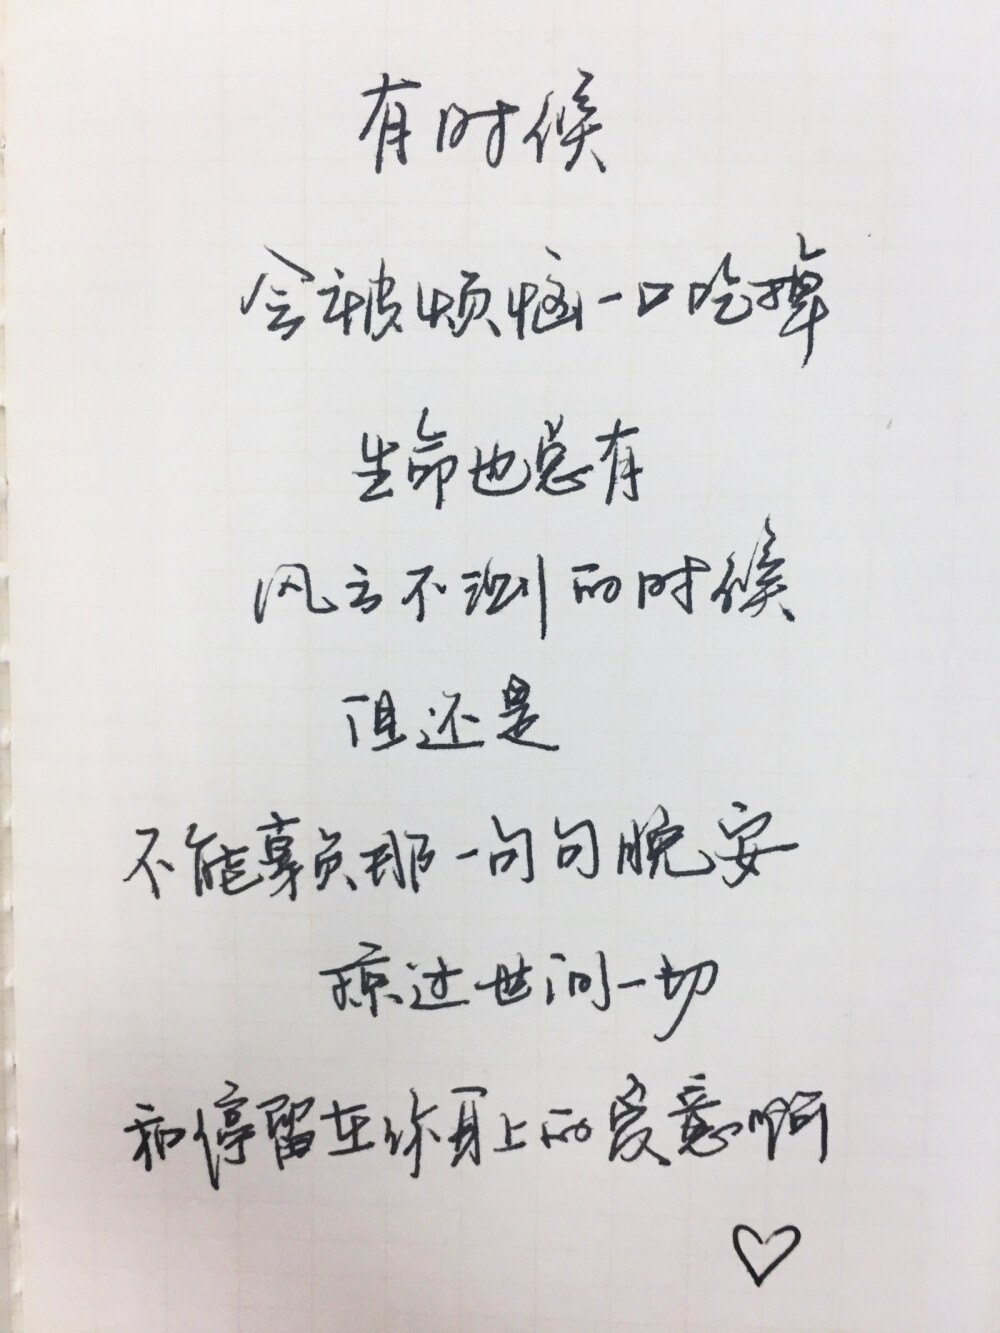 有时候
会被烦恼一口吃掉
生命也总有
风云不测的时候
但还是
不能辜负那一句句晚安
掠过世间一切
和停留在你身上的爱意啊